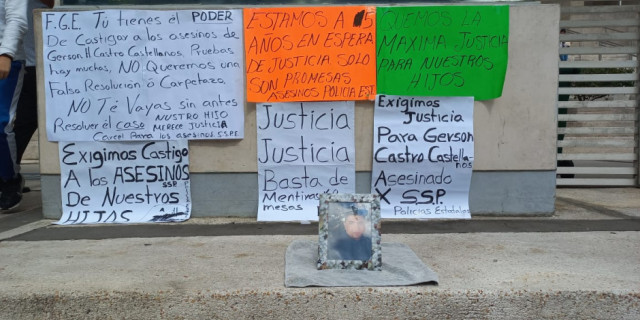 F.G.E. Tú tienes el PODER
De Castigar a los asesinos de
Gerson Castro Castellanos, Pruebas
hay muchas, NO, Queremos una
Falsa Resolución ó Carpetazo
NO Té Vayas sin antes
Resolver el caso NUSTRO HIJO
MERECE JUSTICIA
Carcel Para los asesinos S.S.P.E.
ESTAMOS A 5
AÑOS EN ESPERA
DE JUSTICIA SOLO
SON PROMESAS
ASESINOS POLICIA EST
MAXIMA JUSTICIA
PARA NUESTROS
HIJOS
Exigimos Castigo
A los ASESINOS
SSP
De Nuestros
HIJOS
Justicia
Justicia
Basta de
Mentiras
mesas
Exigimos
Justicia
Para Gerson
Castro Castellanos
Asesinado
X SSP.
Policias